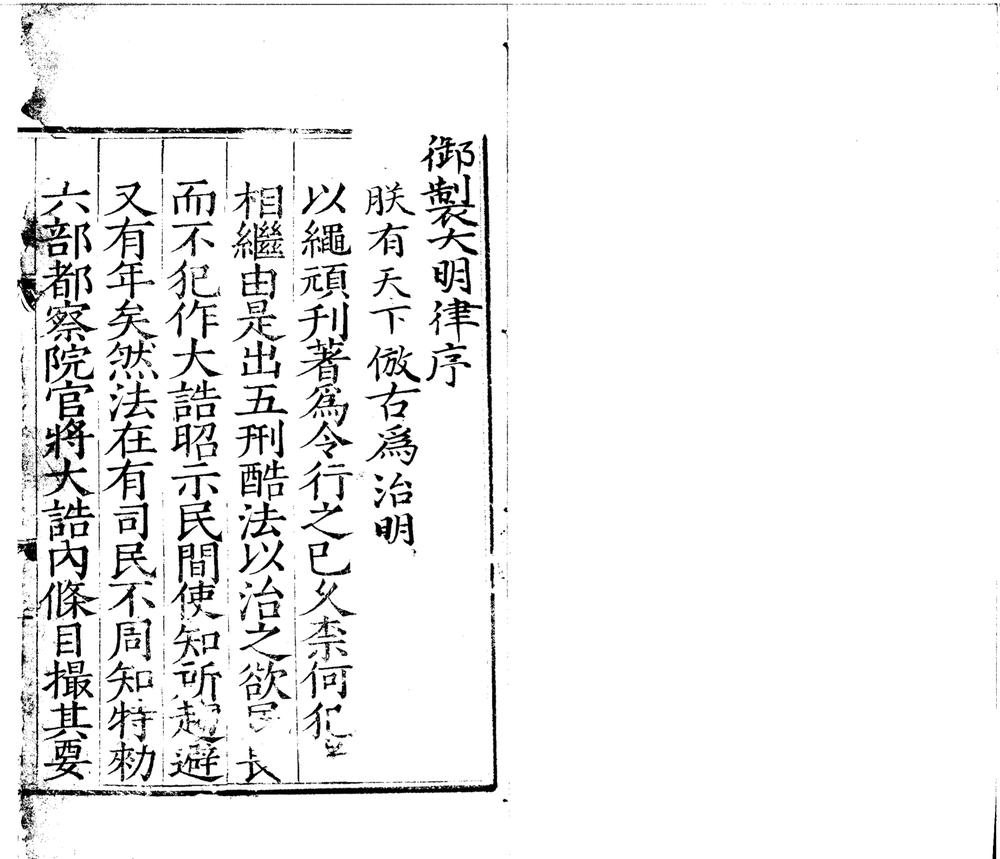 御製大明律序
朕有天下倣古爲治明
以繩頑刋著爲令行之已久柰何犯
相繼由是出五刑酷法以治之欲民長
而不犯作大誥昭示民間使知所趨避
又有年矣然法在有司民不周知特勑
六部都察院官將大誥內條目撮其要